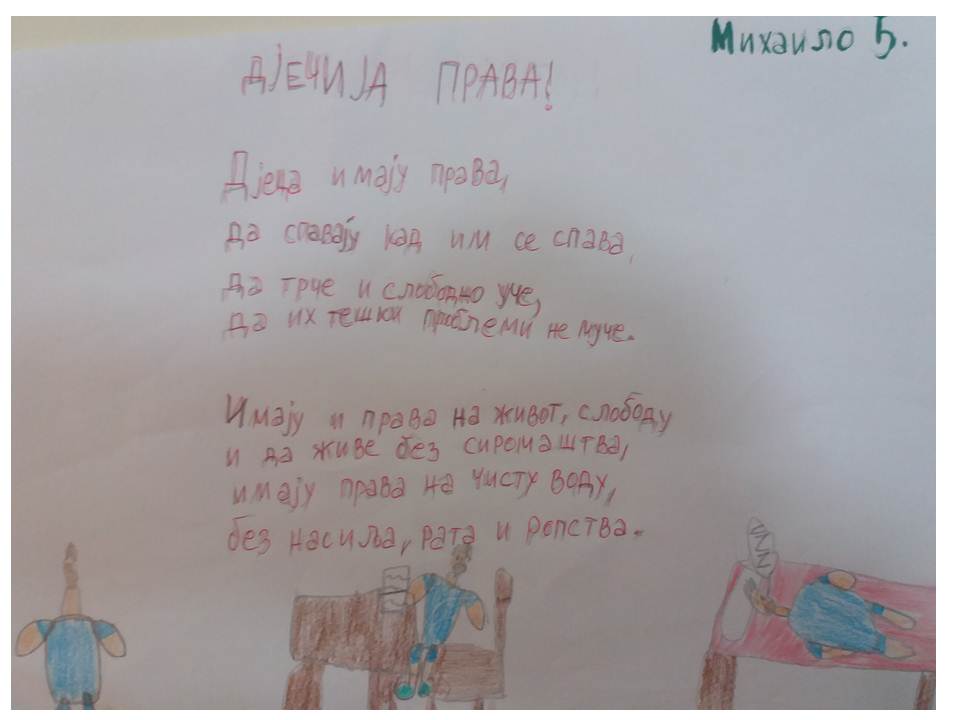 Михаило Ђ.
ДЈЕЧИЈА ПРАВА!
Дјеца имају права,
да спавају кад им се спава,
да трче и слободно уче,
да их тешки проблеми не муче.
Имају и права на живот, слободу
и да живе без сиромаштва,
имају права на чисту воду,
без насиља, рата и ропства.